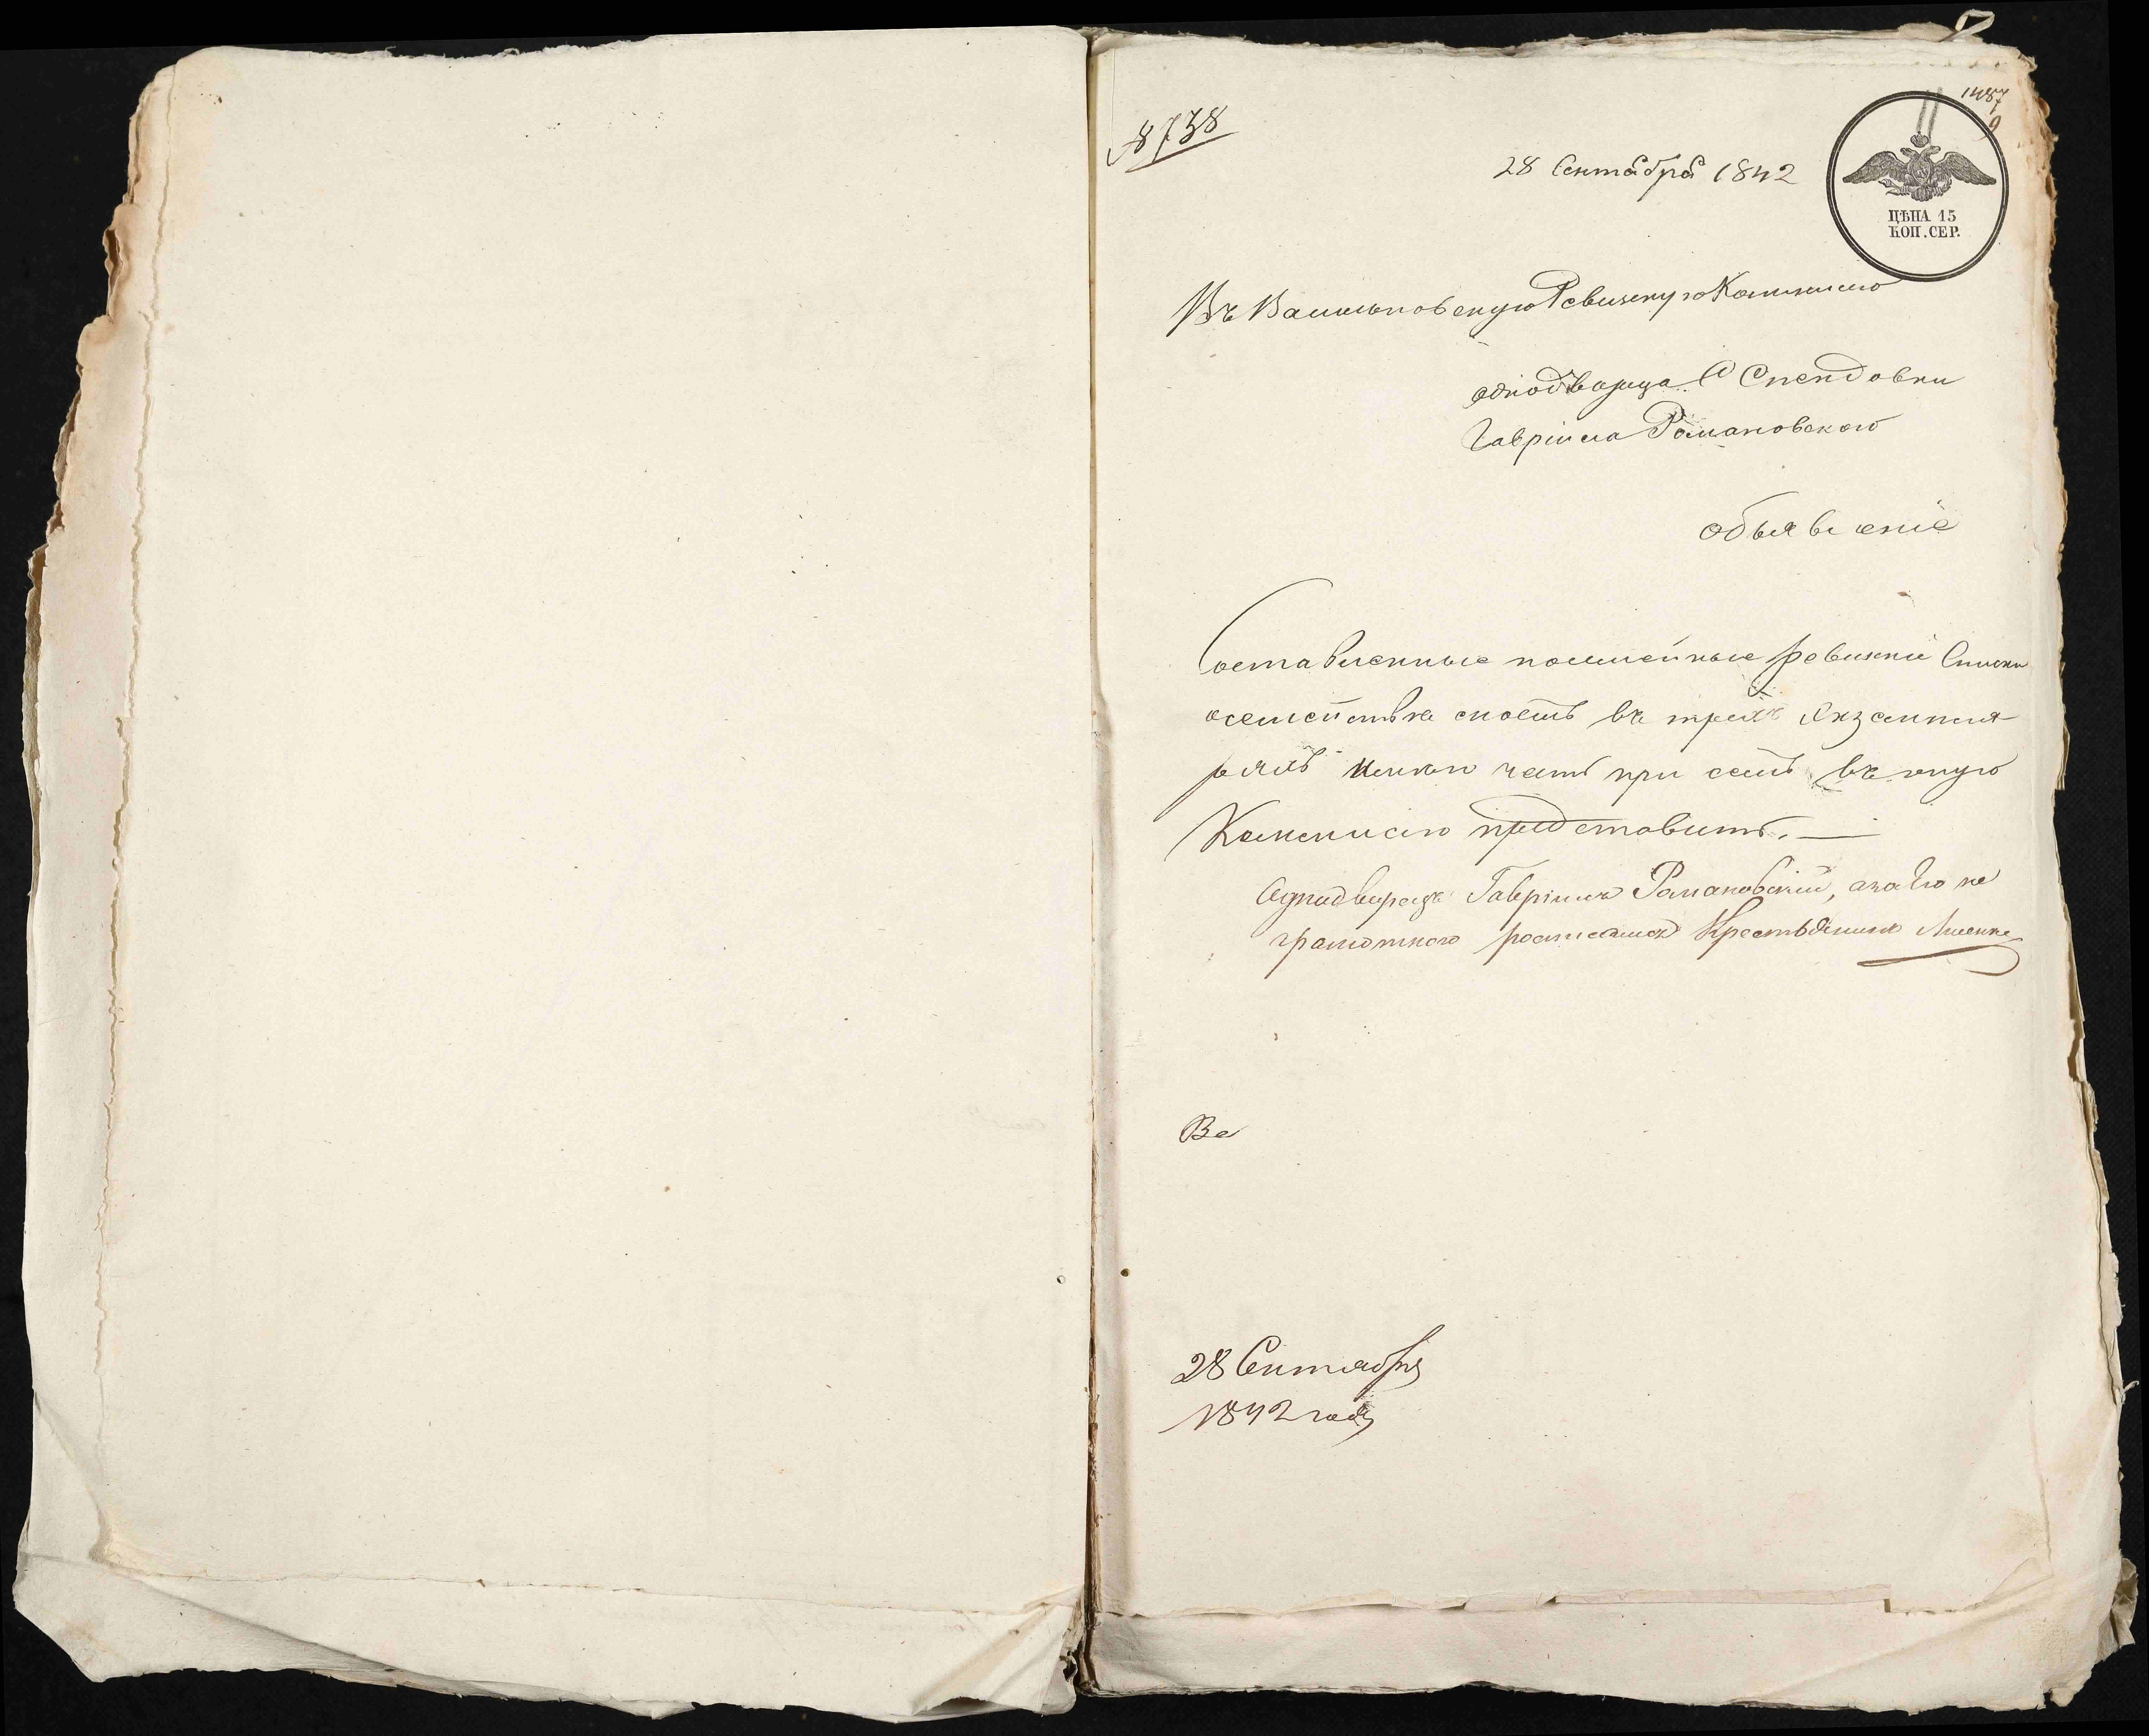 1487
9
8738
28 Сентября 1842
ЦѢНА 15
КОП. СЕР.
Въ Васильковскую Ревизкую Коммисию
однодворца С Снендовки
Гавріила Романовского
объявленіе
Составленные посемейные ревизкіе Списки
осемействе моемъ въ трехъ Екземпля
ряхъ имею честь при семъ въ оную
Коммисию представить. —
Однодворецъ Гавріилъ Романовскій, а за Его не
грамотного росписался Крестьянинъ
Ве
28 Сентября
1842 года